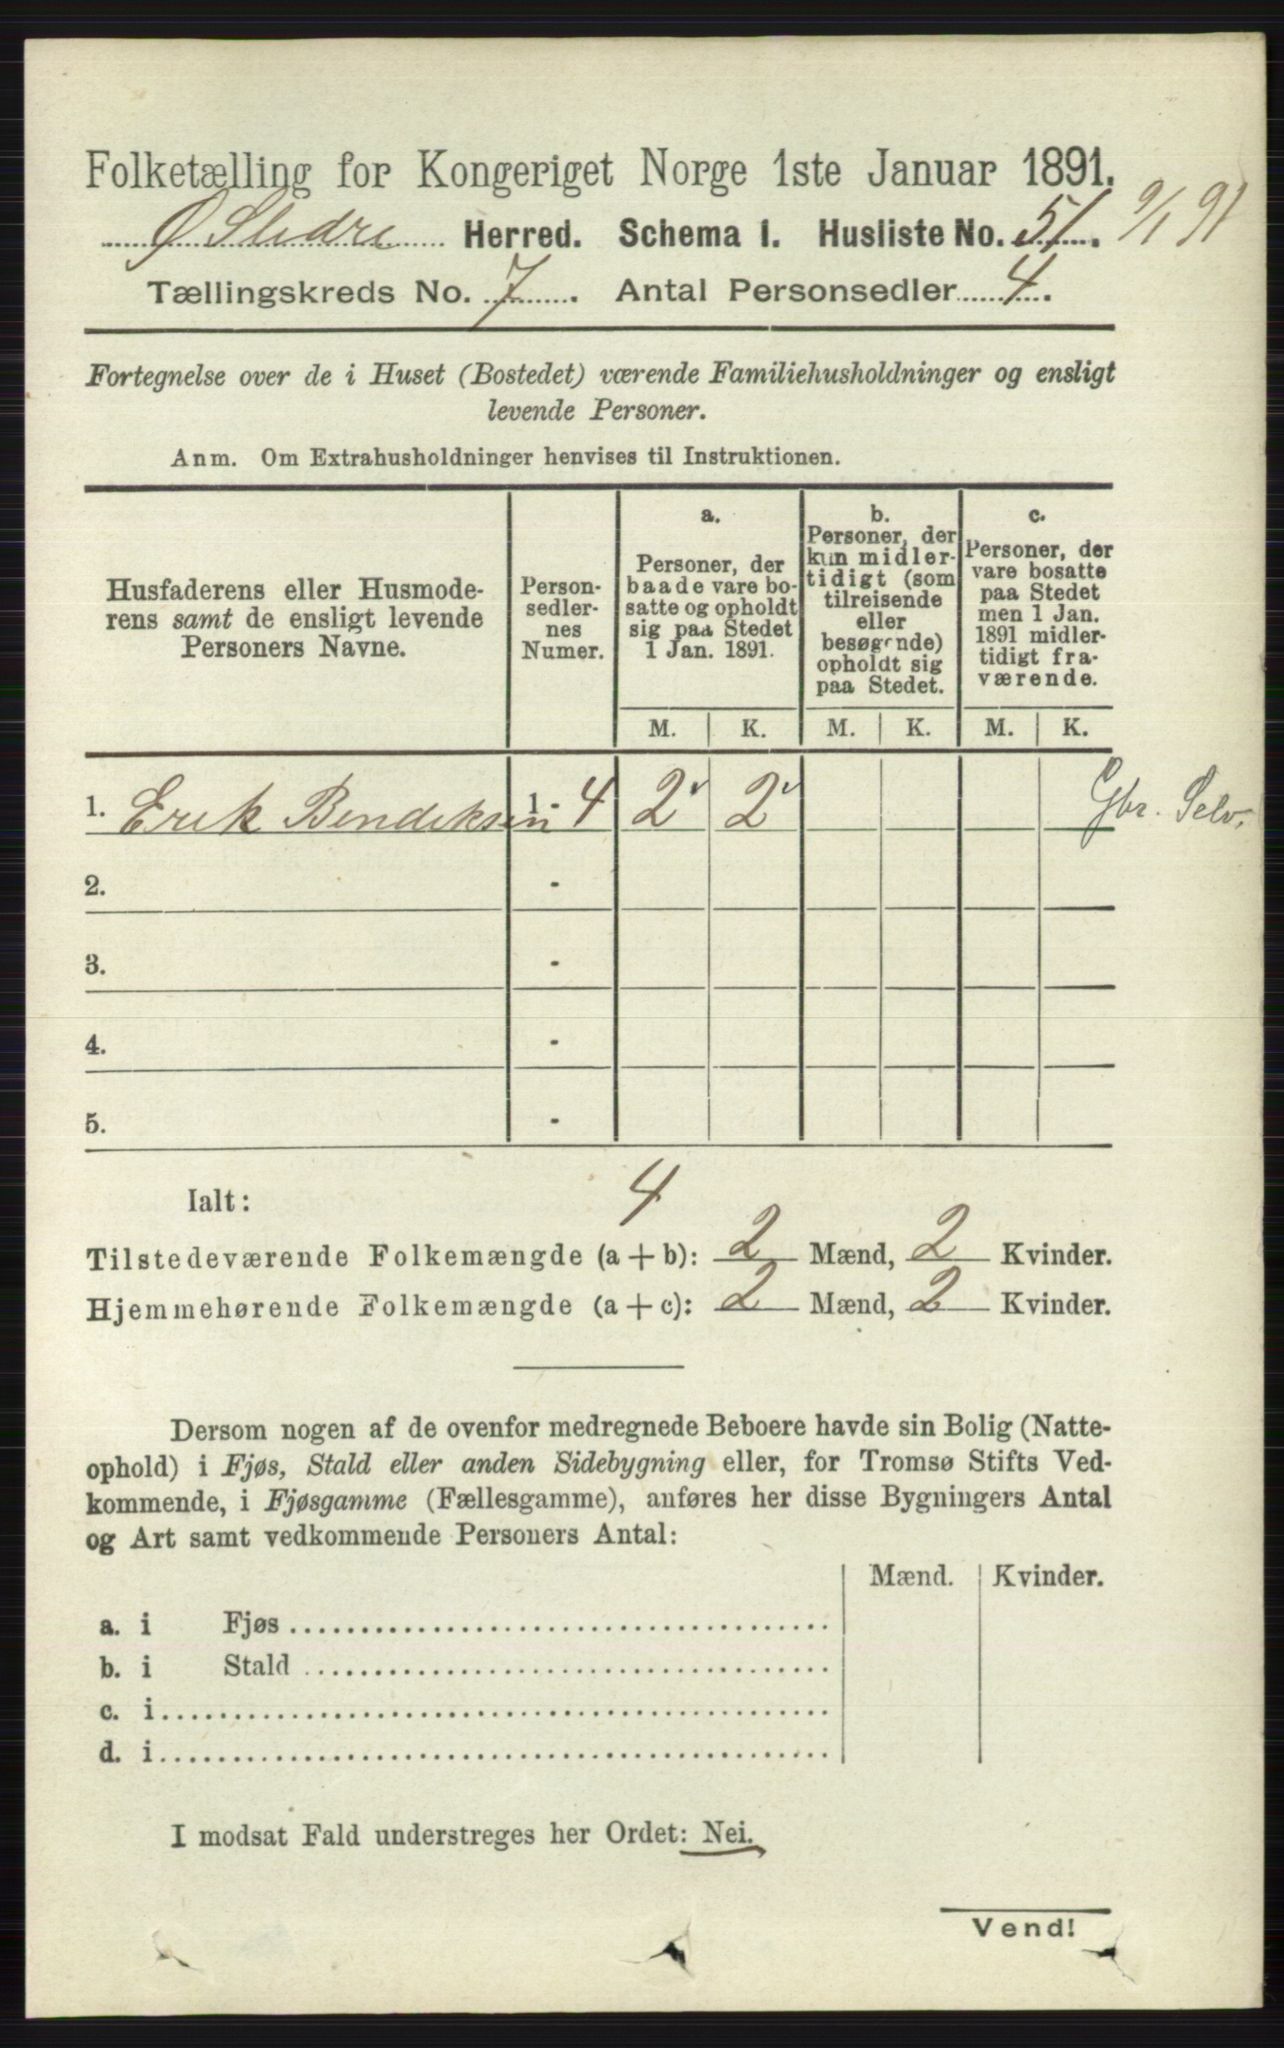 Folketælling for Kongeriget Norge 1ste Januar 1891.
Ø Slidre Herred. Schema I. Husliste No. 51. 9/1 91
Tællingskreds No. 7. Antal Personsedler 4.
Fortegnelse over de i Huset (Bostedet) værende Familiehusholdninger og ensligt
levende Personer.
Anm. Om Extrahusholdninger henvises til Instruktionen.
Husfaderens eller Husmode-
rens samt de ensligt levende
Personers Navne.
Person-
sedler-
nes
Numer.
a.
Personer, der
baade vare bo-
satte og opholdt
sig paa Stedet
1 Jan. 1891.
b.
Personer, der
kun midler-
tidigt (som
tilreisende
eller
besøgende)
opholdt sig
paa Stedet.
c.
Personer, der
vare bosatte
paa Stedet
men 1 Jan.
1891 midler-
tidigt fra-
værende.
M. K. M. K. M. K.
1. Erik Bendiksen 1 - 4 2 2 Gbr. Selv.
2. -
3. -
4. -
5. -
Ialt: 4
Tilstedeværende Folkemængde (a + b): 2 Mænd, 2 Kvinder.
Hjemmehørende Folkemængde (a + c): 2 Mænd, 2 Kvinder.
Dersom nogen af de ovenfor medregnede Beboere havde sin Bolig (Natte-
ophold) i Fjøs, Stald eller anden Sidebygning eller, for Tromsø Stifts Ved-
kommende, i Fjøsgamme (Fællesgamme), anføres her disse Bygningers Antal
og Art samt vedkommende Personers Antal:
Mænd. Kvinder.
a. i Fjøs
b. i Stald
c. i
d. i
I modsat Fald understreges her Ordet: Nei.
Vend!